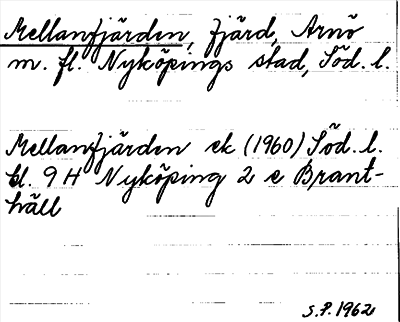 Mellanfjärden, fjärd, Arnö
m. fl. Nyköpings stad, Söd. l.
Mellanfjärden ek (1960) Söd. l.
bl. 9 H Nyköping 2 e Brant-
häll
S.P. 1962